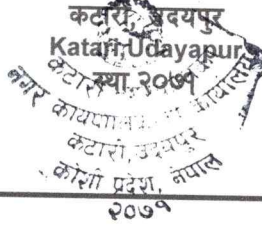 कटारी, उदयपुर
Katari, Udayapur
स्था. २०७१
नगर कार्यपालिका कार्यालय
कटारी, उदयपुर
कोशी प्रदेश, नेपाल
२०७१